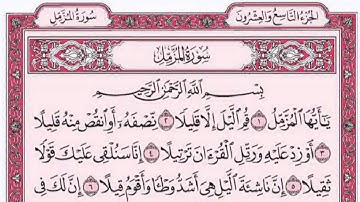 الجُزْءُ التَّاسِعُ وَالعِشْرُونَ
سُورَةُ المُزَّمِّلِ
سُورَةُ المُزَّمِّلِ
بِسْمِ اللَّهِ الرَّحْمَٰنِ الرَّحِيمِ
يَٰٓأَيُّهَا ٱلْمُزَّمِّلُ ١ قُمِ ٱلَّيْلَ إِلَّا قَلِيلًا ٢ نِّصْفَهُۥٓ أَوِ ٱنقُصْ مِنْهُ قَلِيلًا
٣ أَوْ زِدْ عَلَيْهِ وَرَتِّلِ ٱلْقُرْءَانَ تَرْتِيلًا ٤ إِنَّا سَنُلْقِى عَلَيْكَ قَوْلًا
ثَقِيلًا ٥ إِنَّ نَاشِئَةَ ٱلَّيْلِ هِىَ أَشَدُّ وَطْـًٔا وَأَقْوَمُ قِيلًا ٦ إِنَّ لَكَ فِى